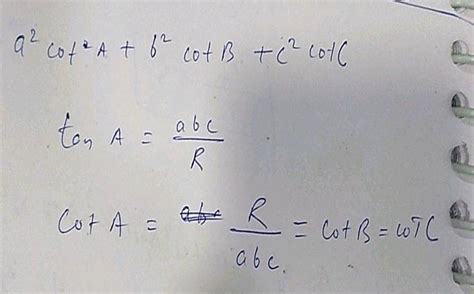 a² cot²A + b² cotB + c² cotC
tan A = abc / R
cot A = R / abc = cotB = cotC